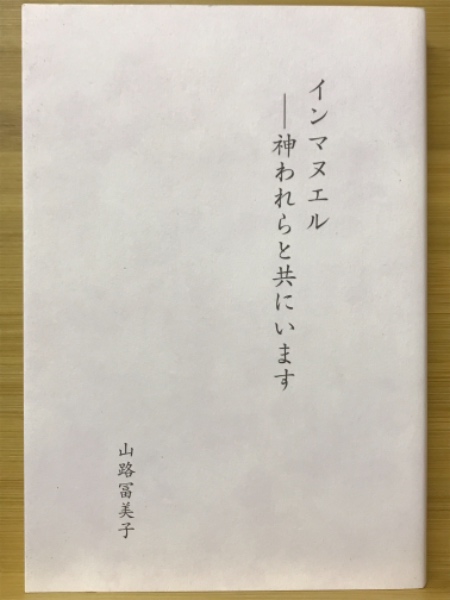 インマヌエル
──神われらと共にいます
山路冨美子